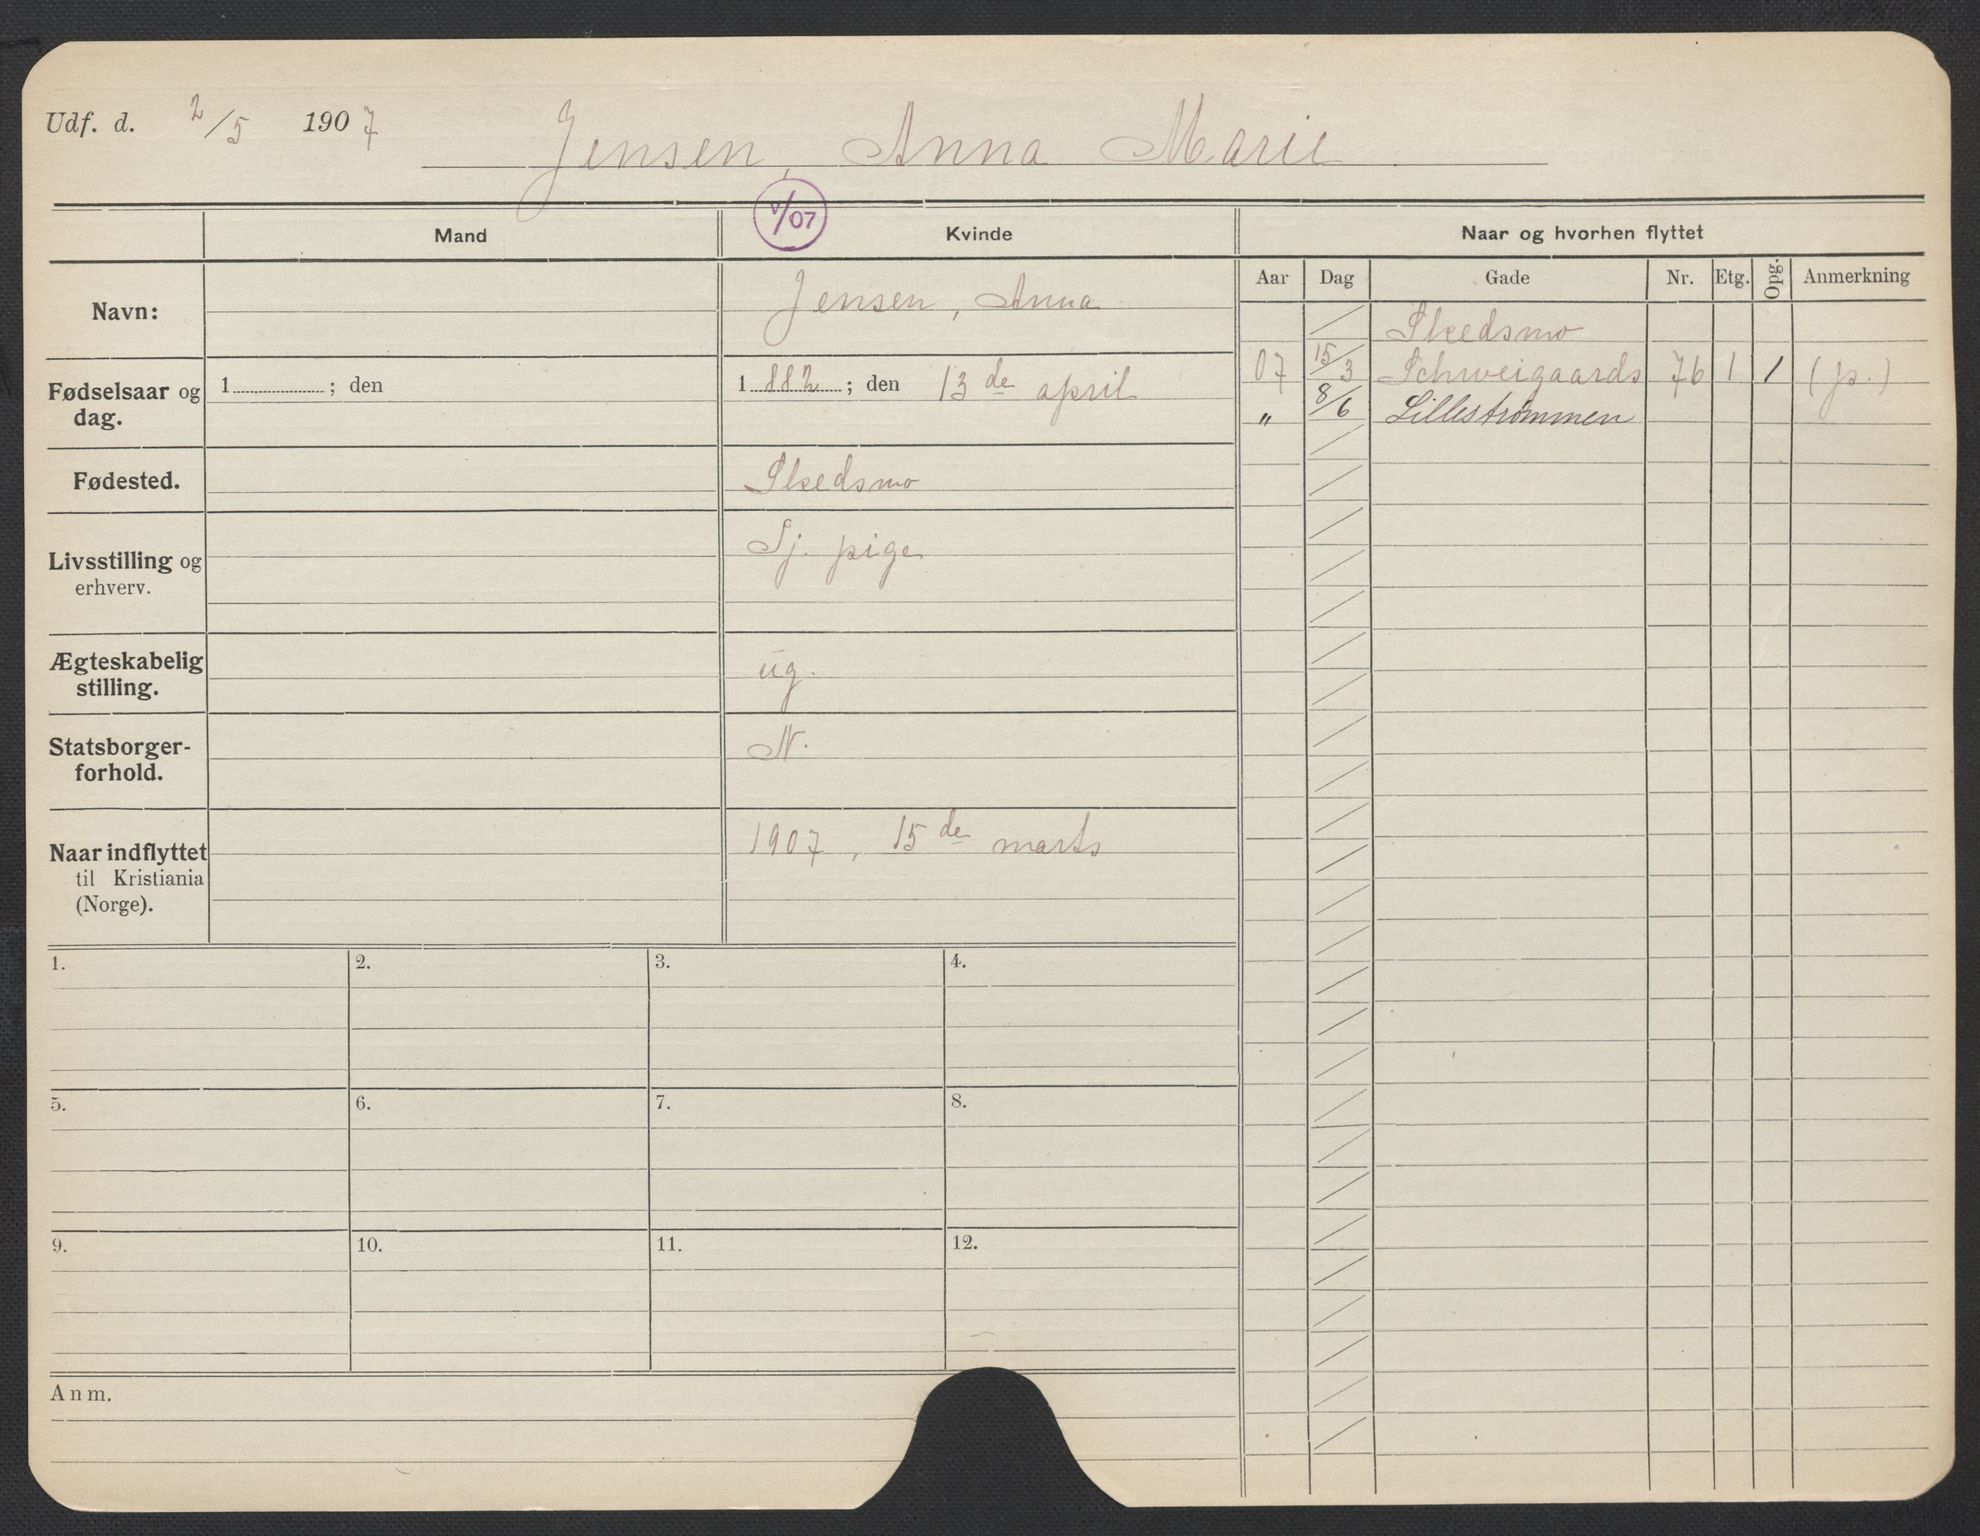 Udf. d. 2/5 1907 Jensen, Anna Marie
V/07
Mand Kvinde Naar og hvorhen flyttet
Aar Dag Gade Nr. Etg. Opg. Anmerkning
Navn: Jensen, Anna
Skedsmo
07 15/3 Schweigaards 76 1 1 (p.)
„ 8/6 Lillestrømmen
Fødselsaar og dag. 1 ; den 1 882 ; den 13de april
Fødested. Skedsmo
Livsstilling og erhverv. Tj. pige
Ægteskabelig stilling. ug.
Statsborger-forhold. N.
Naar indflyttet til Kristiania (Norge). 1907, 15de marts
1. 2. 3. 4.
5. 6. 7. 8.
9. 10. 11. 12.
Anm.